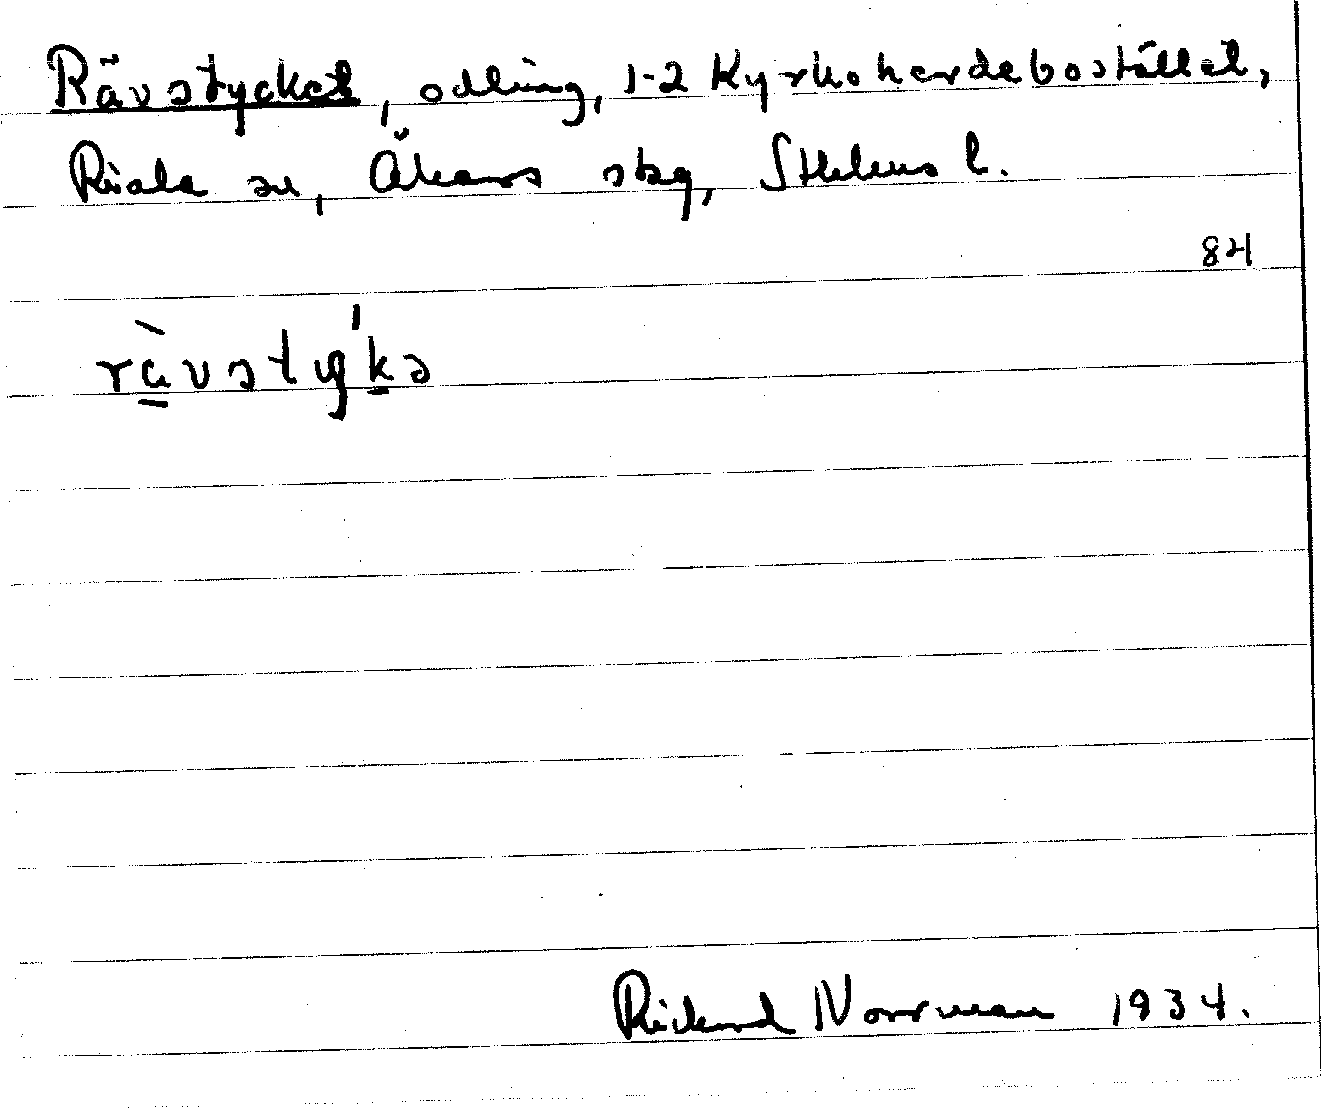 Rävstycket, odling, 1-2 Kyrkoherdebostället,
Riala sn, Åkers skg, Sthlms l.
84
rävstyk̠ə
Rickard Norrman 1934.